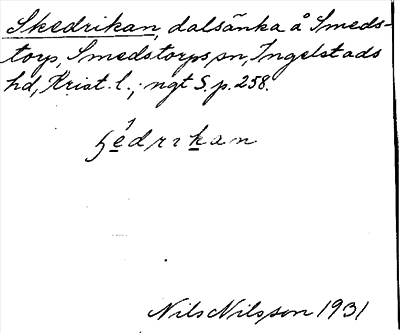 Skedrikan, dalsänka å Smeds-
torp, Smedstorps sn, Ingelstads
hd, Krist. l.; ngt S. p. 258.
Nils Nilsson 1931